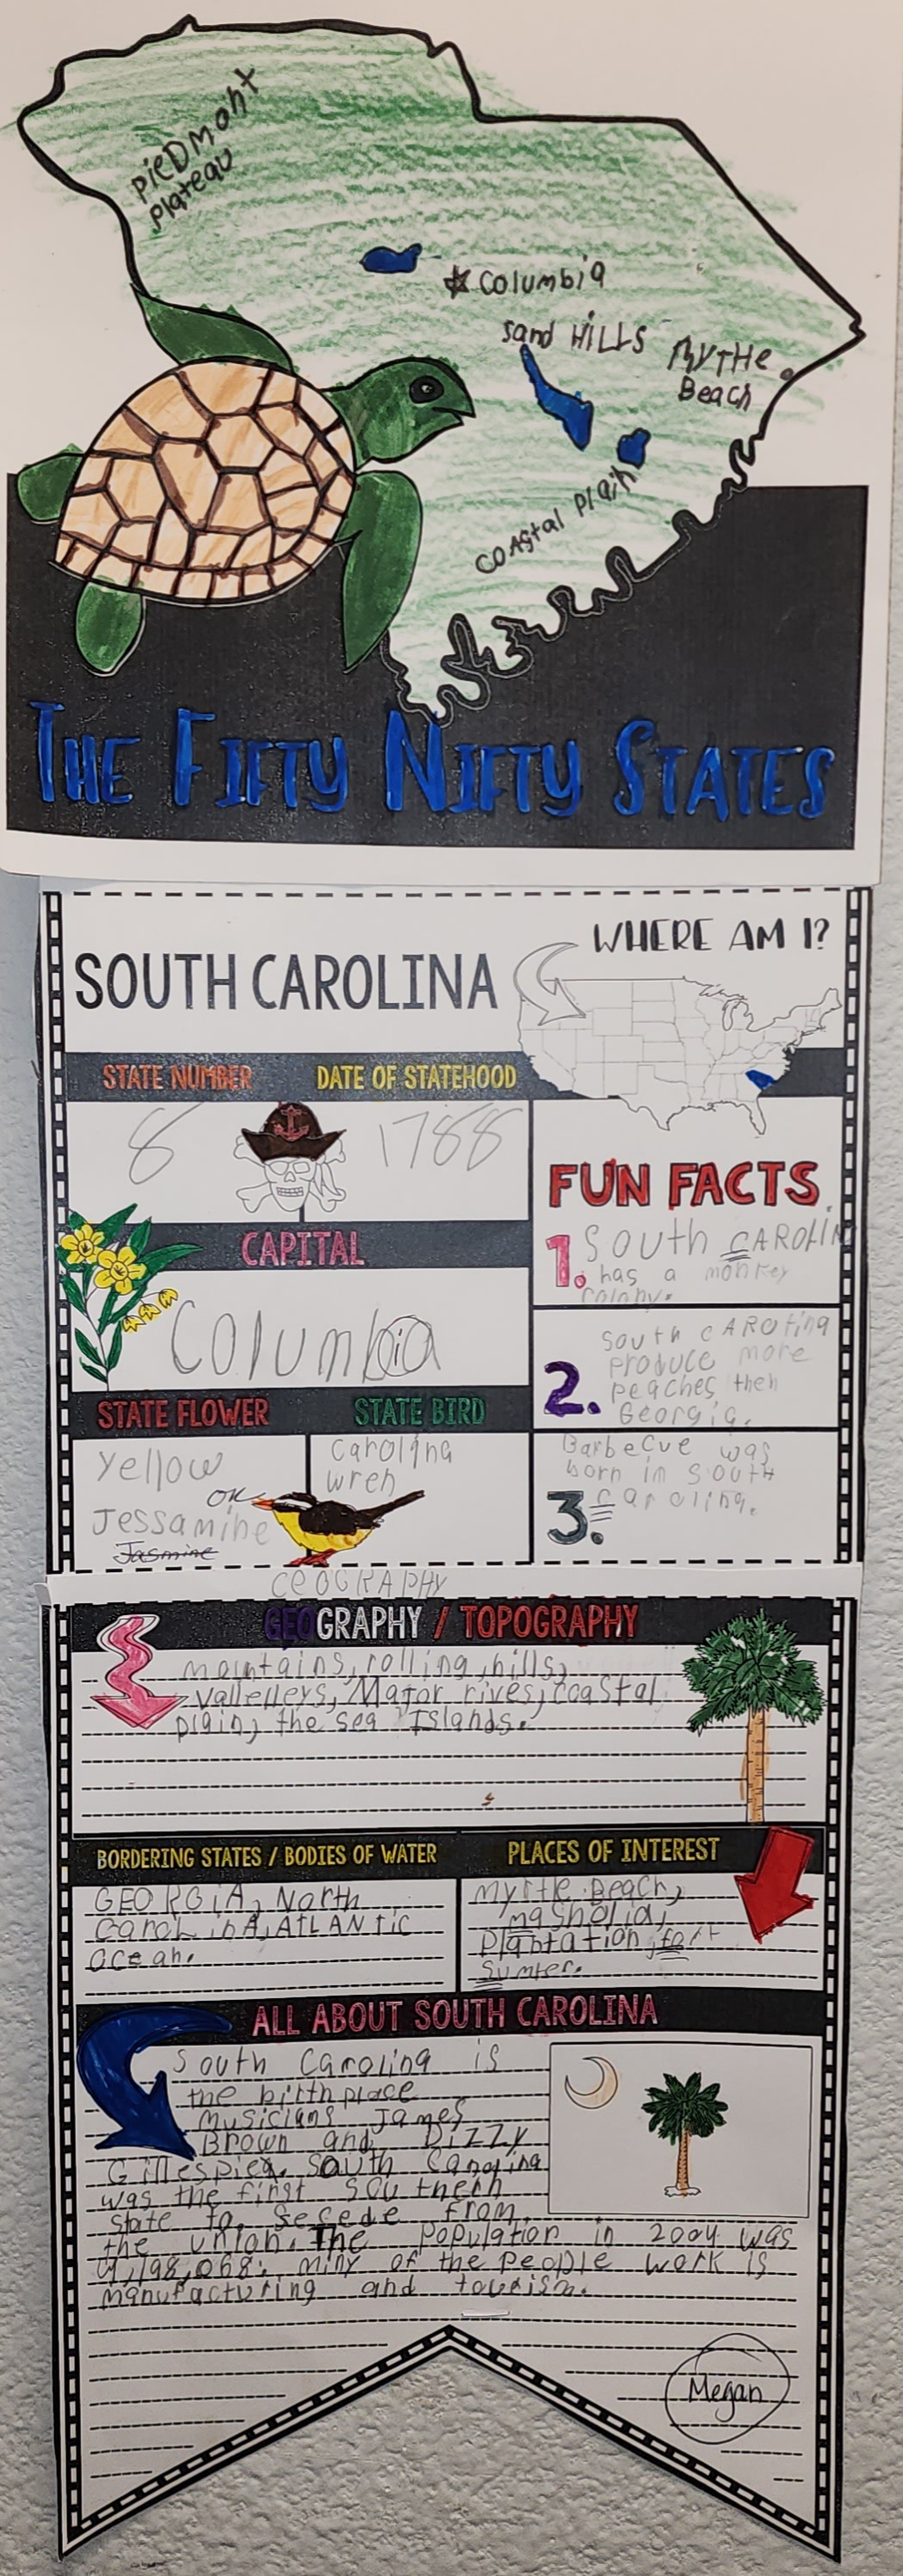 PieDmont
Plateau
Columbia
Sand HiLLS
MYTHe
Beach
COAstal Plain
THE FIFTY NIFTY STATES
WHERE AM I?
SOUTH CAROLINA
STATE NUMBER
DATE OF STATEHOOD
8
1788
FUN FACTS
1. South CAROLIN
has a monkey
colony.
CAPITAL
Columbia
2. South CAROlina
produce more
peaches then
Georgia.
STATE FLOWER
STATE BIRD
Yellow
or
Jessamine
Jasmine
Carolina
Wren
3. Barbecue was
born in South
carolina.
GEOGRAPHY
GEOGRAPHY / TOPOGRAPHY
mountains, rolling, hills,
valleleys, Major rives, coastal
plain, the sea Islands.
BORDERING STATES / BODIES OF WATER
GEORGiA, North
carolinA, ATLANtic
Ocean.
PLACES OF INTEREST
Myrtle Beach,
magnolia,
Plantation, fort
Sumter.
ALL ABOUT SOUTH CAROLINA
South Carolina is
the birthplace
musicians James
Brown and Dizzy
Gillespiea. South Carolina
was the first Southern
state to secede from
the union. The population in 2004 was
4,198,068; miny of the people work is
manufacturing and tourism.
Megan